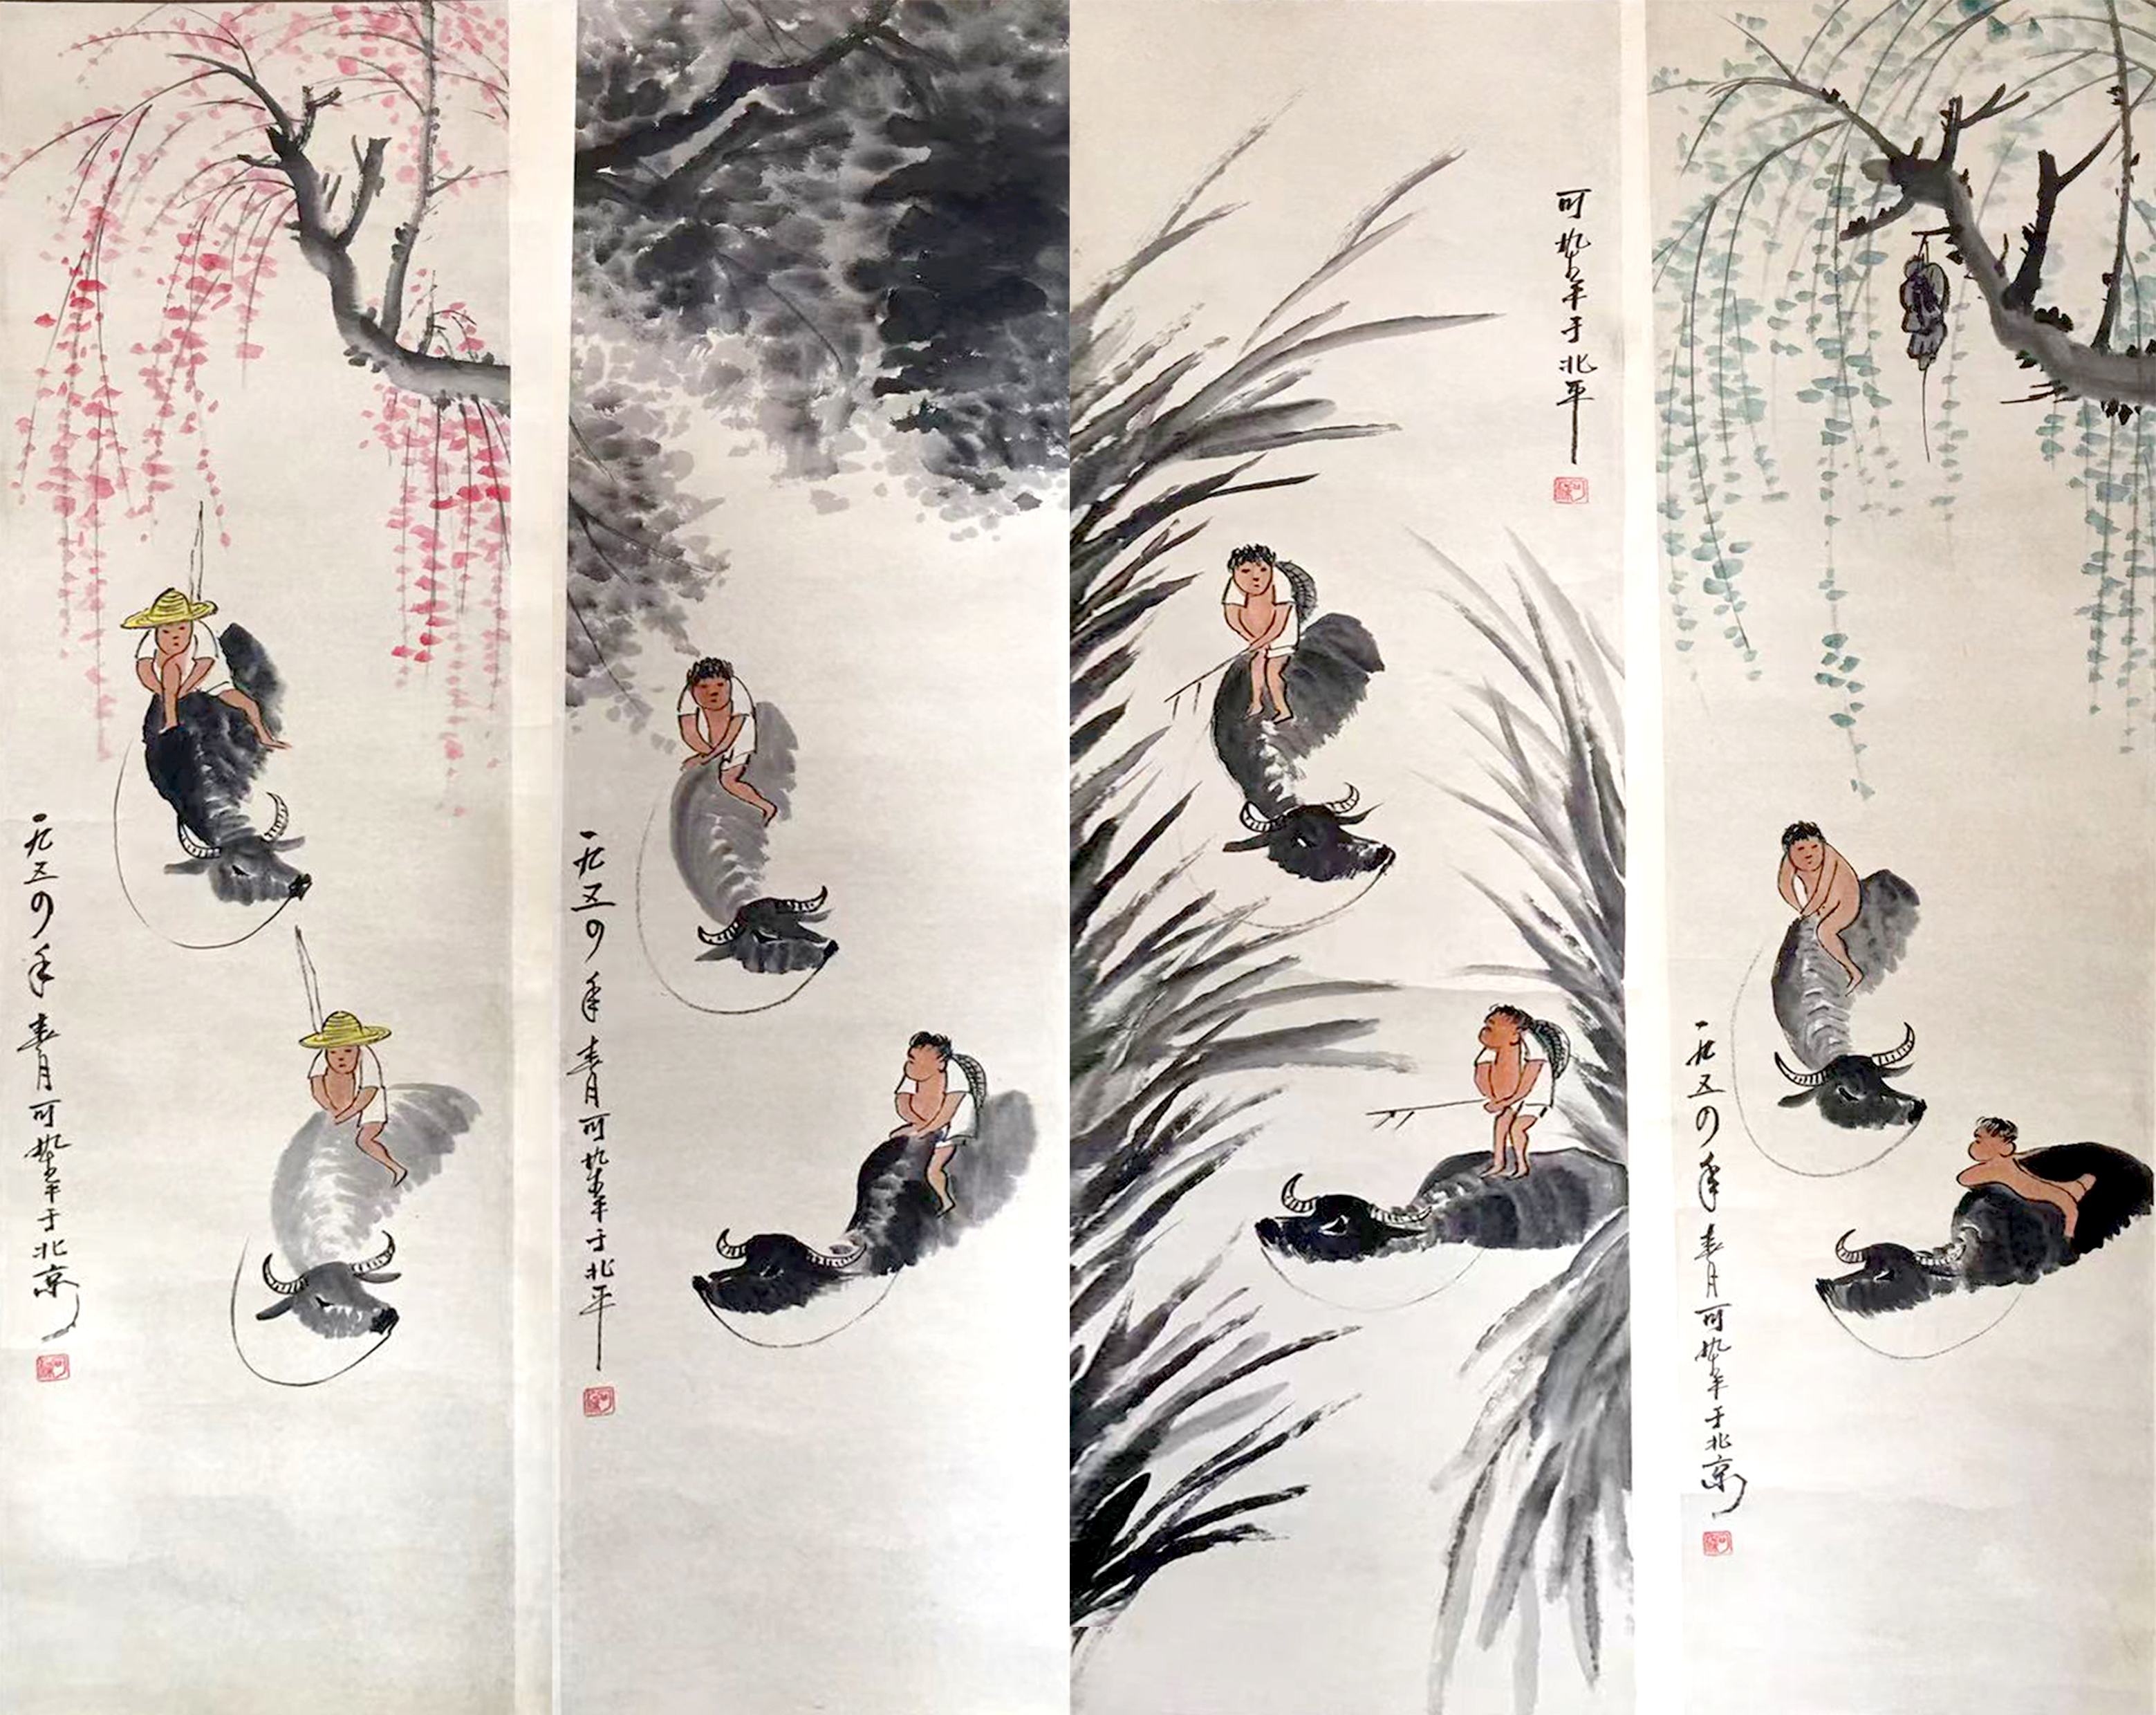 一九五四年春月可染筆于北京
一九五四年春月可染筆于北平
可染筆于北平
一九五四年春月可染筆于北京